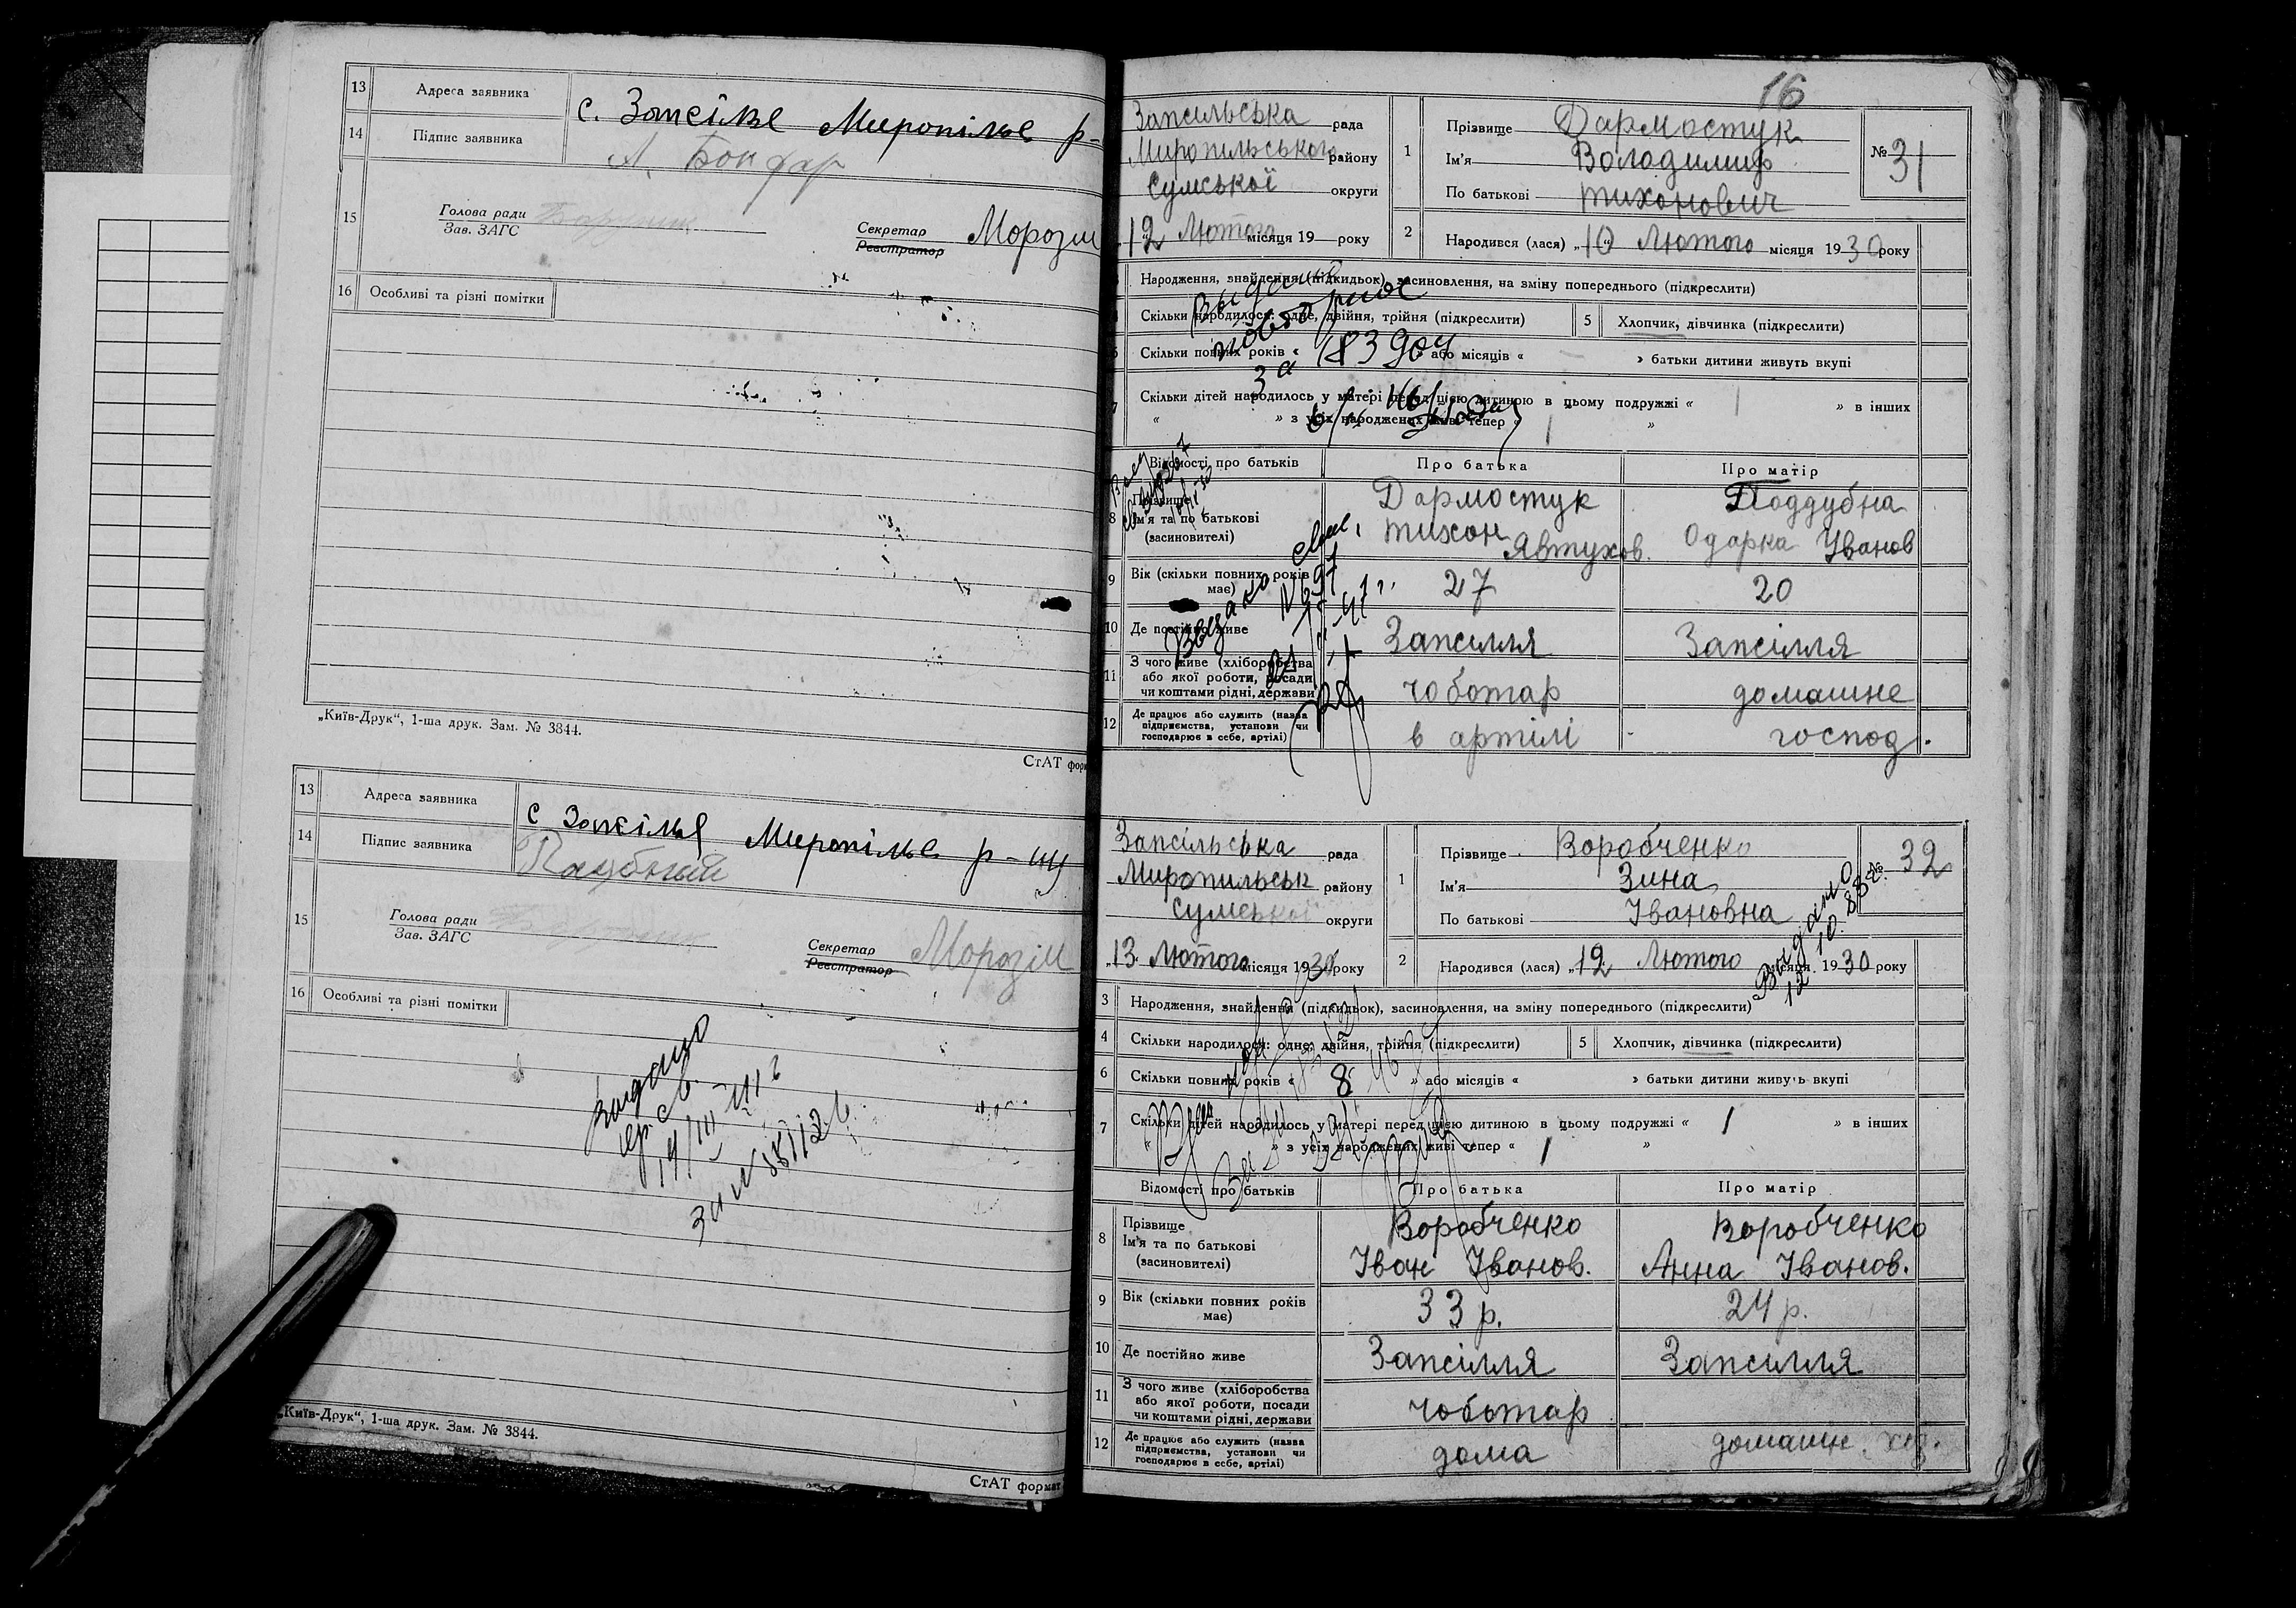 13 Адреса заявника с. Запсілье Миропілье р-
14 Підпис заявника А. Бондар
15 Голова ради
Зав. ЗАГС
Секретар Морозив
Реєстратор
16 Особливі та різні помітки
„Київ-Друк“, 1-ша друк. Зам. № 3844.
СтАТ форм
13 Адреса заявника с Запсілья Миропілье р-ну
14 Підпис заявника
15 Голова ради
Зав. ЗАГС
Секретар Морозів
Реєстратор
16 Особливі та різні помітки
видано
14/III
за №
„Київ-Друк“, 1-ша друк. Зам. № 3844.
СтАТ формат
16
Запсильська рада
Миропильського району
Сумської округи
12 Лютого місяця 19 року
1 Прізвище Дармостук
Ім'я Володимир
По батькові Тихонович
№ 31
2 Народився (лася) „10 Лютого місяця 1930 року
Народження, знайдення (підкидьок), засиновлення, на зміну попереднього (підкреслити)
Скільки народилося: одне, двійня, трійня (підкреслити)
5 Хлопчик, дівчинка (підкреслити)
Скільки повних років « » або місяців « » батьки дитини живуть вкупі
Скільки дітей народилось у матері перед цією дитиною в цьому подружжі « 1 » в інших
« » з усіх народжених живі тепер « 1 »
повторное
за
Відомості про батьків Про батька Про матір
8 Прізвище Дармостук Поддубна
Ім'я та по батькові Тихон Явтухов. Одарка Іванов
(засиновителі)
9 Вік (скільки повних років має) 27 20
10 Де постійно живе Запсилля Запсілля
11 З чого живе (хліборобства
або якої роботи, посади
чи коштами рідні, держави
чоботар домашне
12 Де працює або служить (назва
підприємства, установи чи
господарює в себе, артілі)
в артілі господ.
Запсільська рада
Миропильськ району
Сумської округи
„13 Лютого місяця 1930 року
1 Прізвище Воробченко
Ім'я Зина
По батькові Івановна
№ 32
Выдано
12.10.88г.
2 Народився (лася) „12 Лютого місяця 1930 року
3 Народження, знайдення (підкидьок), засиновлення, на зміну попереднього (підкреслити)
4 Скільки народилося: одне, двійня, трійня (підкреслити)
5 Хлопчик, дівчинка (підкреслити)
6 Скільки повних років « 8 » або місяців « » батьки дитини живуть вкупі
7 Скільки дітей народилось у матері перед цією дитиною в цьому подружжі « 1 » в інших
« » з усіх народжених живі тепер « 1 »
Відомості про батьків Про батька Про матір
8 Прізвище Воробченко Воробченко
Ім'я та по батькові Іван Іванов. Анна Іванов.
(засиновителі)
9 Вік (скільки повних років має) 33 р. 24 р.
10 Де постійно живе Запсілля Запсилля
11 З чого живе (хліборобства
або якої роботи, посади
чи коштами рідні, держави
чоботар
12 Де працює або служить (назва
підприємства, установи чи
господарює в себе, артілі)
дома домашн. хоз.